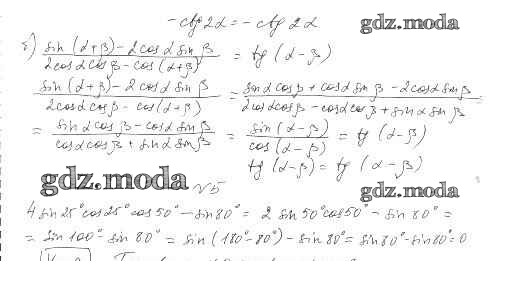 - ctg 2α = - ctg 2α
gdz.moda
б) sin (α+β) - 2cos α sin β / 2cos α cos β - cos (α+β) = tg (α-β)
sin (α+β) - 2cos α sin β / 2cos α cos β - cos (α+β) = sin α cos β + cos α sin β - 2cos α sin β / 2cos α cos β - cos α cos β + sin α sin β =
= sin α cos β - cos α sin β / cos α cos β + sin α sin β = sin (α-β) / cos (α-β) = tg (α-β)
tg (α-β) = tg (α-β)
gdz.moda
№5
gdz.moda
4 sin 25° cos 25° cos 50° - sin 80° = 2 sin 50° cos 50° - sin 80° =
= sin 100° - sin 80° = sin (180°-80°) - sin 80° = sin 80° - sin 80° = 0